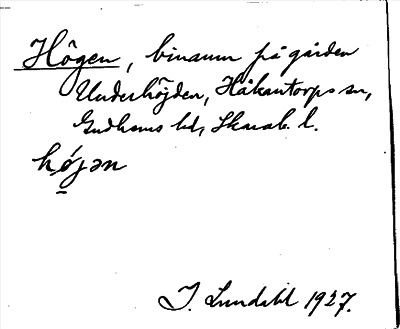 Högen, binamn på gården
Underhöjden, Håkantorps sn,
Gudhems hd, Skarab. l.
hǿjən
J. Lundahl 1927.